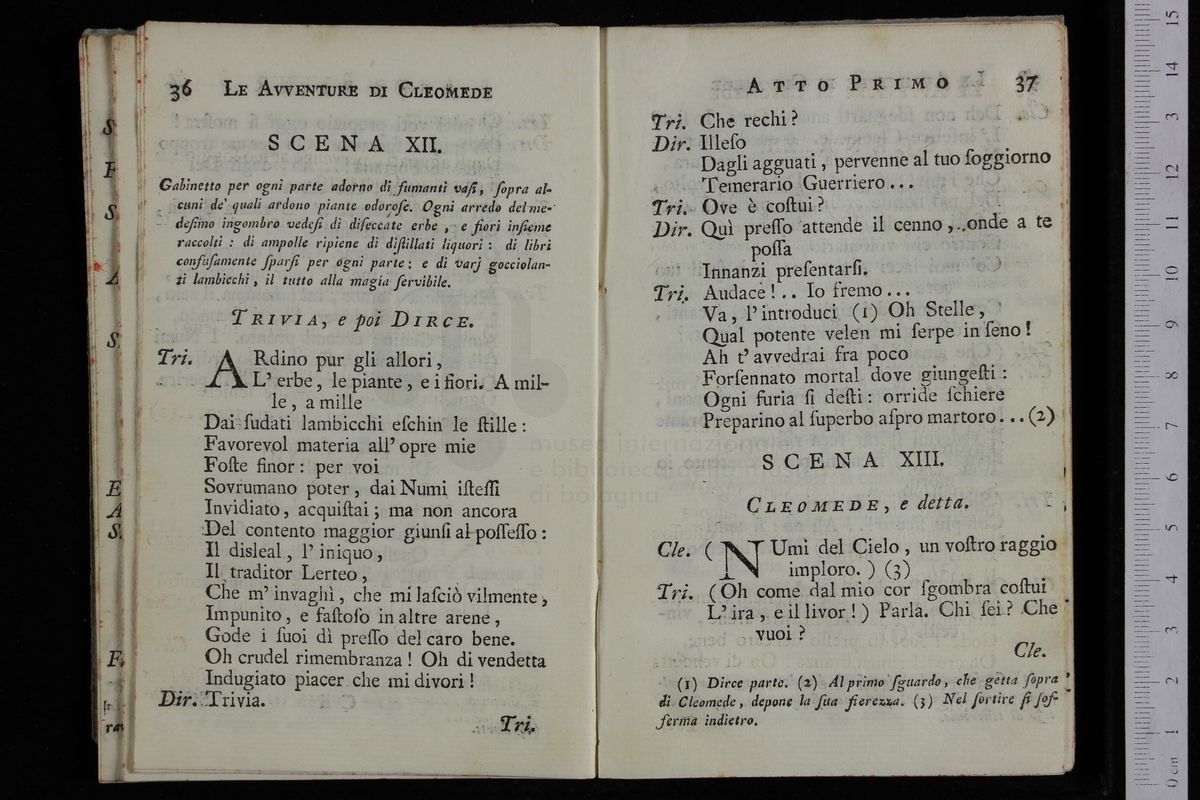 36 LE AVVENTURE DI CLEOMEDE
SCENA XII.
Gabinetto per ogni parte adorno di fumanti vaſi, ſopra al-
cuni de' quali ardono piante odoroſe. Ogni arredo del me-
deſimo ingombro vedeſi di diſeccate erbe, e fiori inſieme
raccolti : di ampolle ripiene di diſtillati liquori : di libri
confuſamente ſparſi per ogni parte; e di varj gocciolan-
ti lambicchi, il tutto alla magia ſervibile.
TRIVIA, e poi DIRCE.
Tri. ARdino pur gli allori,
L' erbe, le piante, e i fiori. A mil-
le, a mille
Dai ſudati lambicchi eſchin le ſtille :
Favorevol materia all' opre mie
Foſte finor : per voi
Sovrumano poter, dai Numi iſteſſi
Invidiato, acquiſtai; ma non ancora
Del contento maggior giunſi al poſſeſſo :
Il disleal, l' iniquo,
Il traditor Lerteo,
Che m' invaghì, che mi laſciò vilmente,
Impunito, e faſtoſo in altre arene,
Gode i ſuoi dì preſſo del caro bene.
Oh crudel rimembranza ! Oh di vendetta
Indugiato piacer che mi divori !
Dir. Trivia.
Tri.
ATTO PRIMO 37
Tri. Che rechi ?
Dir. Illeſo
Dagli agguati, pervenne al tuo ſoggiorno
Temerario Guerriero...
Tri. Ove è coſtui ?
Dir. Quì preſſo attende il cenno, onde a te
poſſa
Innanzi preſentarſi.
Tri. Audace !.. Io fremo...
Va, l' introduci (1) Oh Stelle,
Qual potente velen mi ſerpe in ſeno !
Ah t' avvedrai fra poco
Forſennato mortal dove giungeſti :
Ogni furia ſi deſti : orride ſchiere
Preparino al ſuperbo aſpro martoro...(2)
SCENA XIII.
CLEOMEDE, e detta.
Cle. (NUmi del Cielo, un voſtro raggio
imploro. ) (3)
Tri. (Oh come dal mio cor ſgombra coſtui
L' ira, e il livor !) Parla. Chi ſei ? Che
vuoi ?
Cle.
(1) Dirce parte. (2) Al primo ſguardo, che getta ſopra
di Cleomede, depone la ſua fierezza. (3) Nel ſortire ſi ſof-
ferma indietro.
museo internazionale
e biblioteca
di bologna